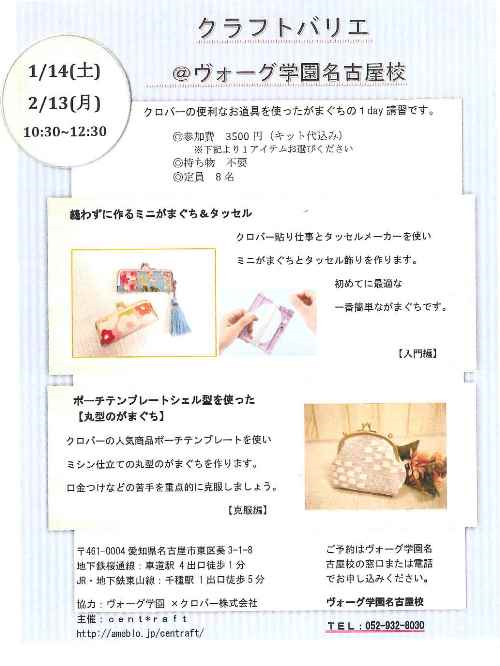 クラフトバリエ
@ヴォーグ学園名古屋校
1/14(土)
2/13(月)
10:30~12:30
クロバーの便利なお道具を使ったがまぐちの1day講習です。
◎参加費 3500円(キット代込み)
※下記より1アイテムお選びください
◎持ち物 不要
◎定員 8名
縫わずに作るミニがまぐち&タッセル
クロバー貼り仕事とタッセルメーカーを使い
ミニがまぐちとタッセル飾りを作ります。
初めてに最適な
一番簡単ながまぐちです。
【入門編】
ポーチテンプレートシェル型を使った
【丸型のがまぐち】
クロバーの人気商品ポーチテンプレートを使い
ミシン仕立ての丸型のがまぐちを作ります。
口金つけなどの苦手を重点的に克服しましょう。
【克服編】
〒461-0004 愛知県名古屋市東区葵3-1-8
地下鉄桜通線:車道駅 4出口徒歩1分
JR・地下鉄東山線:千種駅1出口徒歩5分
協力:ヴォーグ学園 ×クロバー株式会社
主催:cent*raft
http://ameblo.jp/centraft/
ご予約はヴォーグ学園名
古屋校の窓口または電話
でお申し込みください。
ヴォーグ学園名古屋校
TEL:052-932-8030